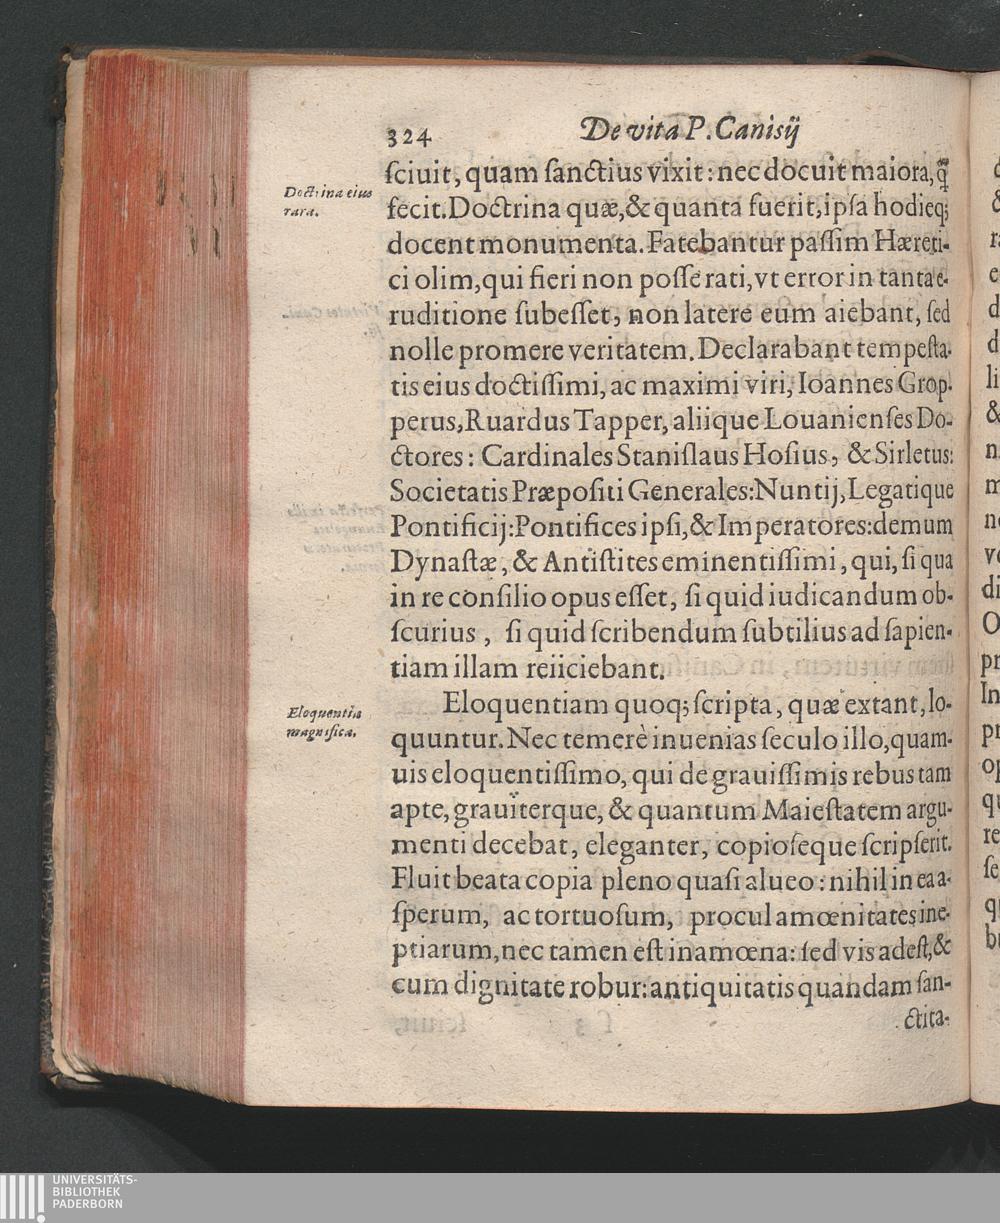 324 De vita P. Canisij
ſciuit, quam ſanctius vixit: nec docuit maiora, q̃
Doctrina eius
rara.
fecit. Doctrina quæ, & quanta fuerit, ipſa hodieq;
docent monumenta. Fatebantur paſſim Hæreti-
ci olim, qui fieri non poſſe rati, vt error in tanta e-
ruditione ſubeſſet, non latere eum aiebant, ſed
nolle promere veritatem. Declarabant tempeſta-
tis eius doctiſſimi, ac maximi viri, Ioannes Grop-
perus, Ruardus Tapper, aliique Louanienſes Do-
ctores: Cardinales Staniſlaus Hoſius, & Sirletus:
Societatis Præpoſiti Generales: Nuntij, Legatique
Pontificij: Pontifices ipſi, & Imperatores: demum
Dynaſtæ, & Antiſtites eminentiſſimi, qui, ſi qua
in re conſilio opus eſſet, ſi quid iudicandum ob-
ſcurius, ſi quid ſcribendum ſubtilius ad ſapien-
tiam illam reiiciebant.
Eloquentia
magnifica.
Eloquentiam quoq; ſcripta, quæ extant, lo-
quuntur. Nec temerè inuenias ſeculo illo, quam-
uis eloquentiſſimo, qui de grauiſſimis rebus tam
apte, grauiterque, & quantum Maieſtatem argu-
menti decebat, eleganter, copioſeque ſcripſerit.
Fluit beata copia pleno quaſi alueo: nihil in ea a-
ſperum, ac tortuoſum, procul amœnitates ine-
ptiarum, nec tamen eſt inamœna: ſed vis adeſt, &
cum dignitate robur: antiquitatis quandam ſan-
ctita-
UNIVERSITÄTS-
BIBLIOTHEK
PADERBORN